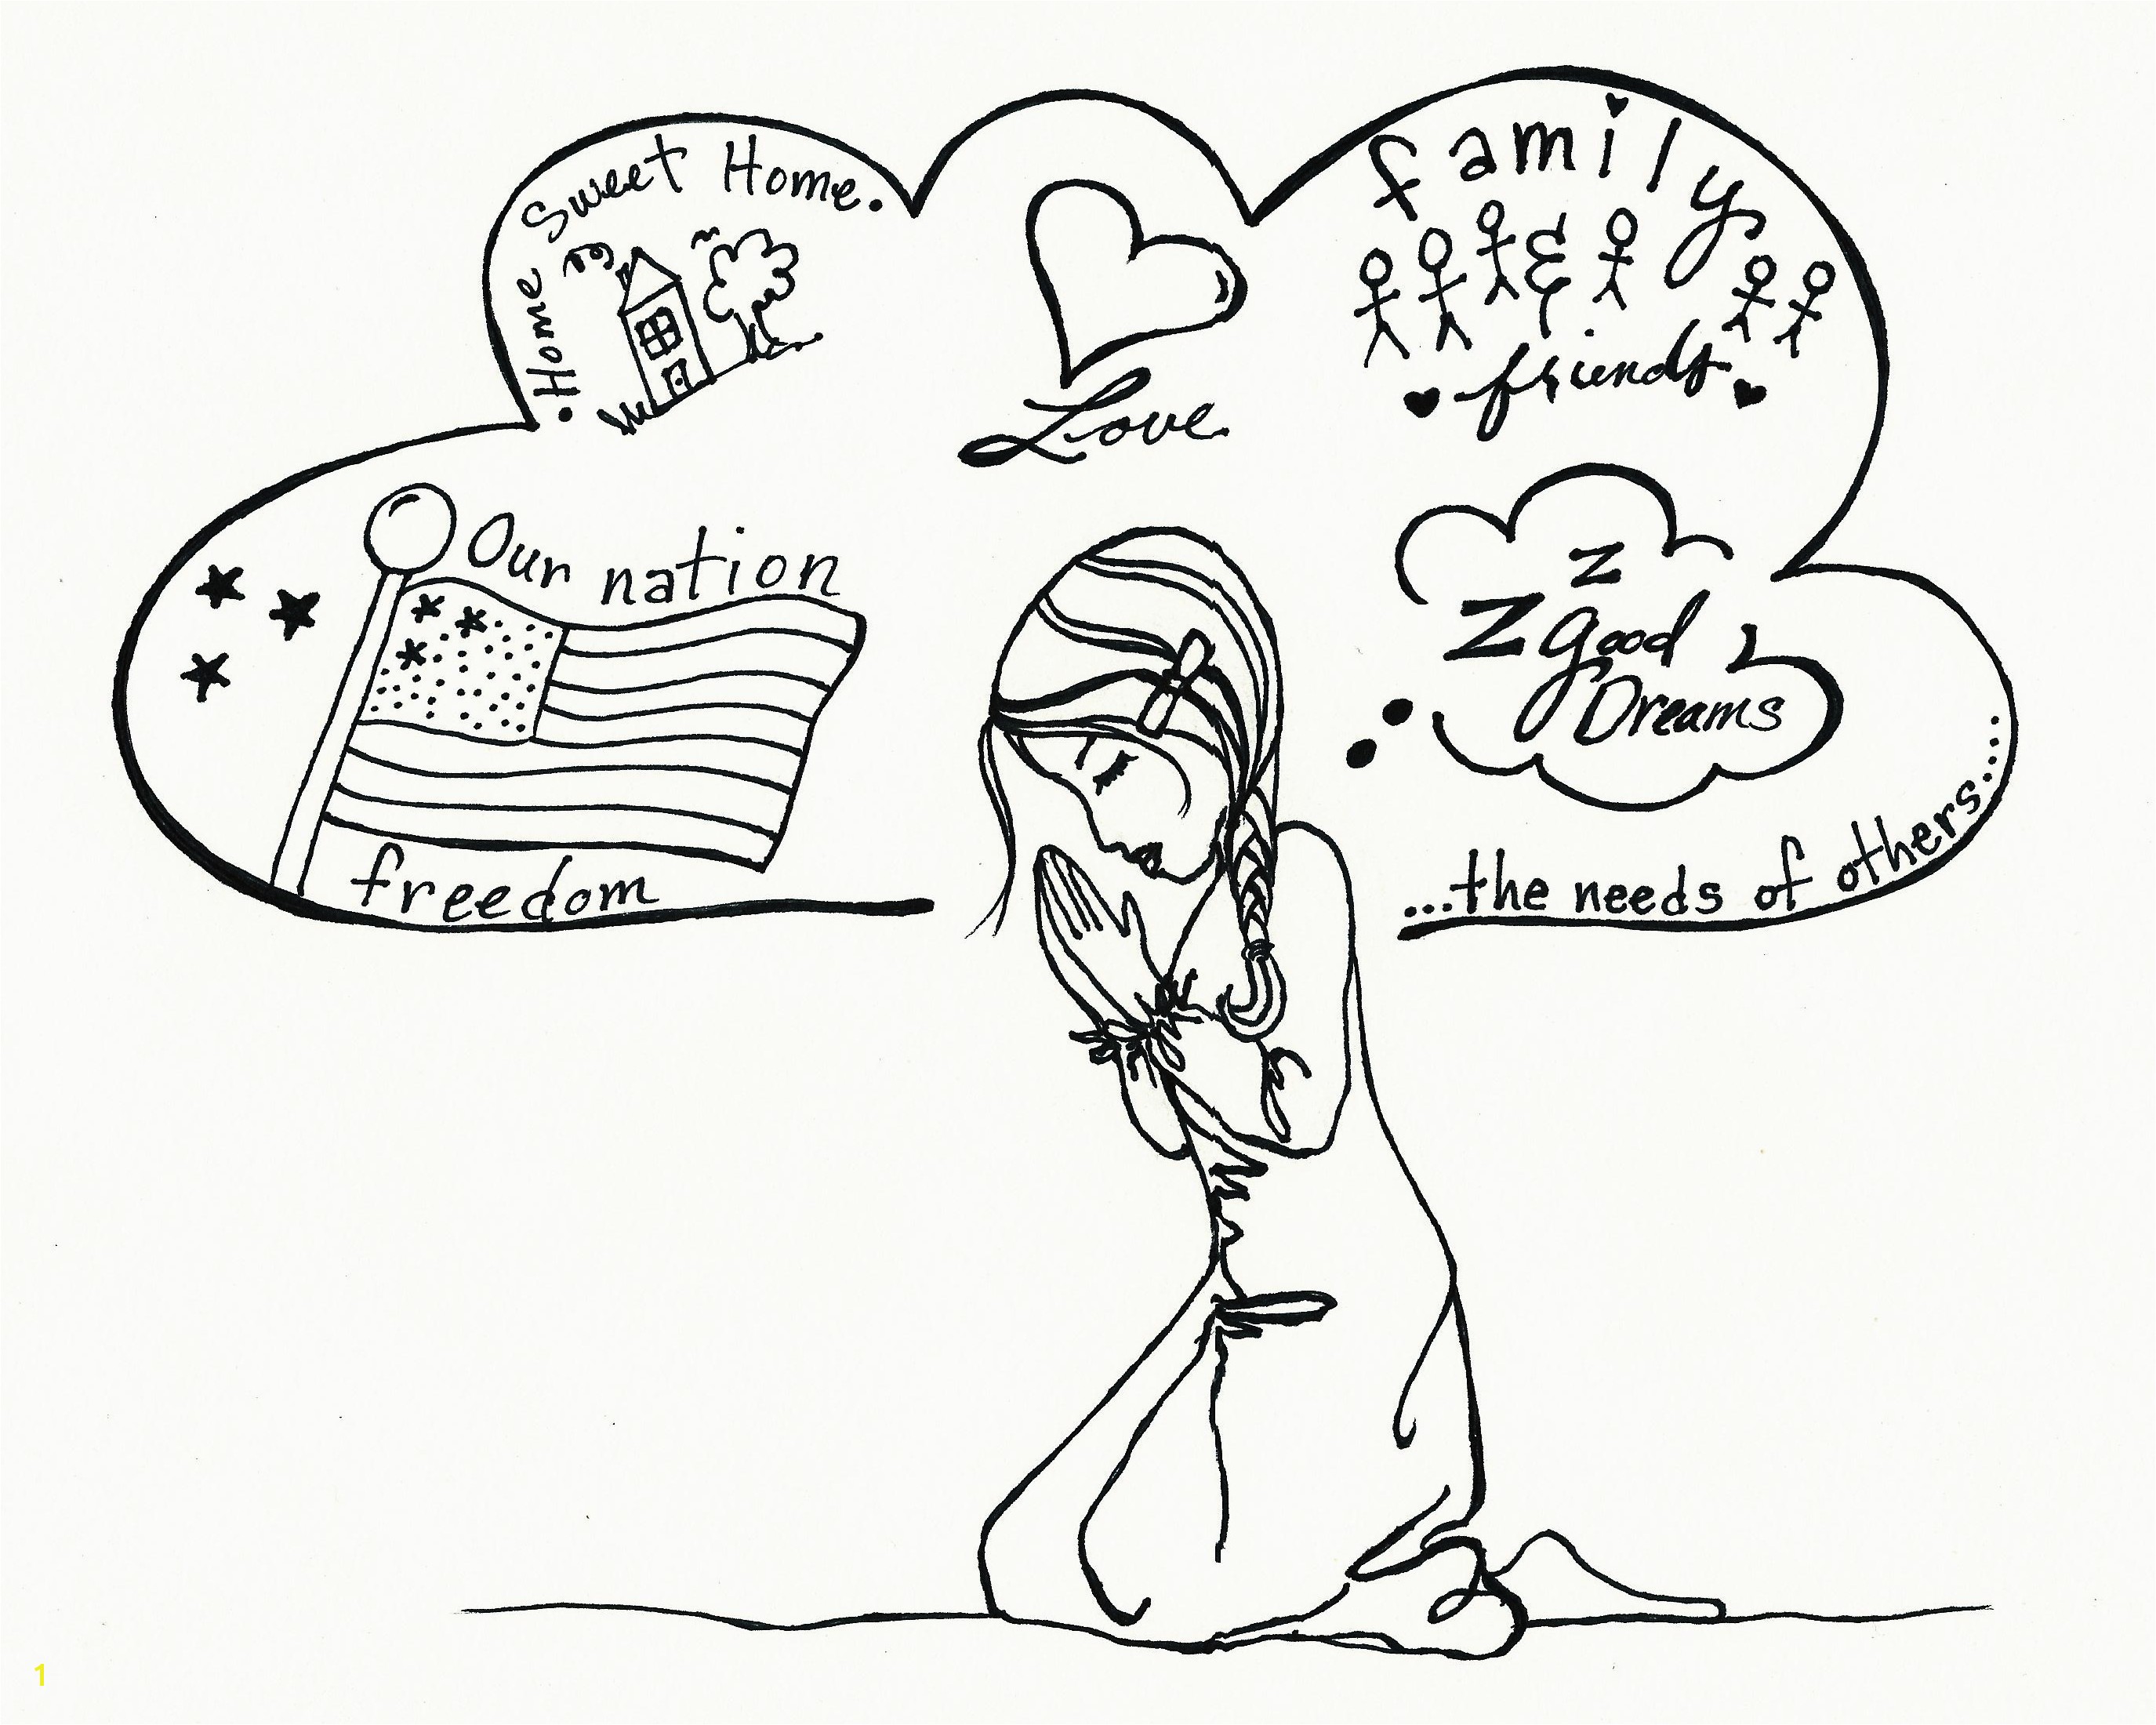 • Home Sweet Home •
Love
family
&
friends
Our nation
freedom
z
z good
Dreams
...the needs of others....
1